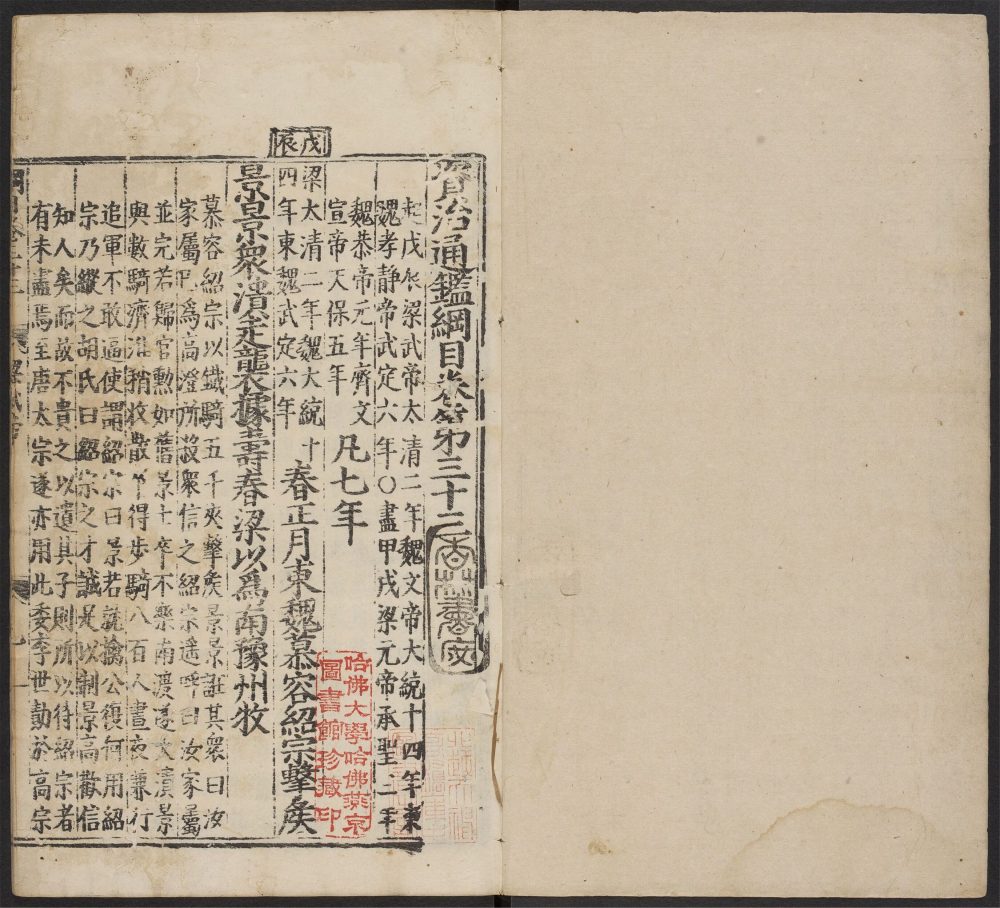 資治通鑑綱目卷第三十二
起戊辰梁武帝太清二年魏文帝大統十四年東
魏孝靜帝武定六年〇盡甲戌梁元帝承聖三年
魏恭帝元年齊文
宣帝天保五年
凡七年
戊辰
梁太清二年魏大統十
四年東魏武定六年
春正月東魏慕容紹宗擊矦
景景衆潰走襲據壽春梁以爲南豫州牧
慕容紹宗以鐵騎五千夾擊矦景景誑其衆曰汝
家屬已爲高澄所殺衆信之紹宗遥呼曰汝家屬
並完若歸官勲如舊景士卒不樂南渡遂大潰景
與數騎濟淮稍收散卒得步騎八百人晝夜兼行
追軍不敢逼使謂紹宗曰景若就擒公復何用紹
宗乃縱之胡氏曰紹宗之才誠足以制景高歡信
知人矣而故不貴之以遺其子則所以待紹宗者
有未盡焉至唐太宗遂亦用此委李世勣於高宗
哈佛大學哈佛燕京
圖書館珍藏印